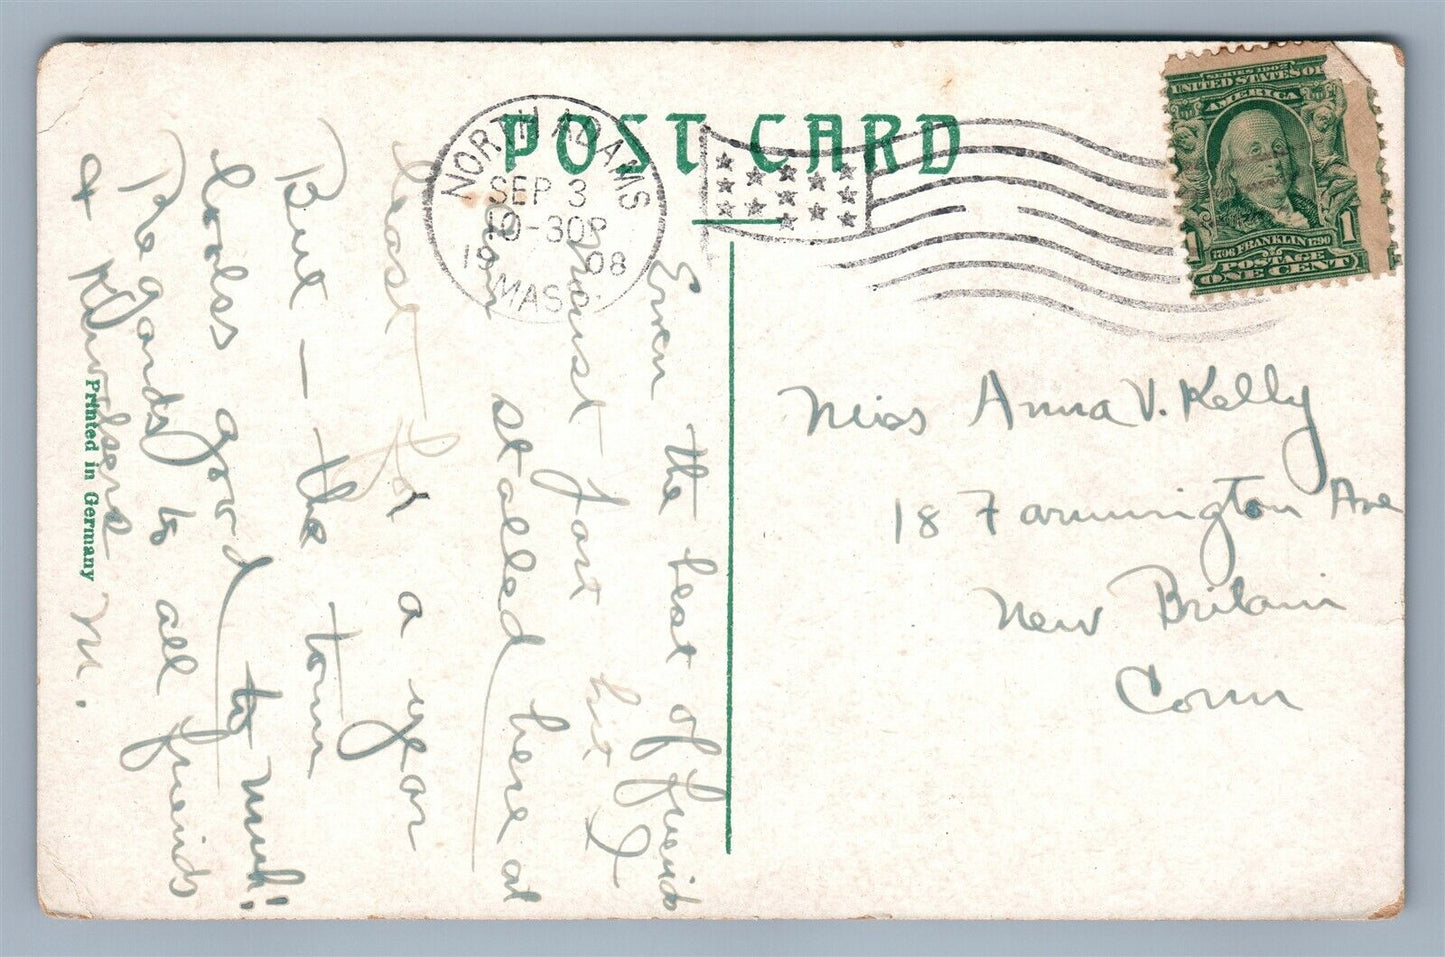 POST CARD
NORTH ADAMS
SEP 3
10-30P
1908
MASS.
SERIES 1902
UNITED STATES OF
AMERICA
1706 FRANKLIN 1790
1 1
POSTAGE
ONE CENT
Miss Anna V. Kelly
18 Farmington Ave
New Britain
Conn
Even the best of friends
must part but I
am stalled here at
least for a year
But — the town
looks good to much!
Regards to all friends
& M.
Printed in Germany